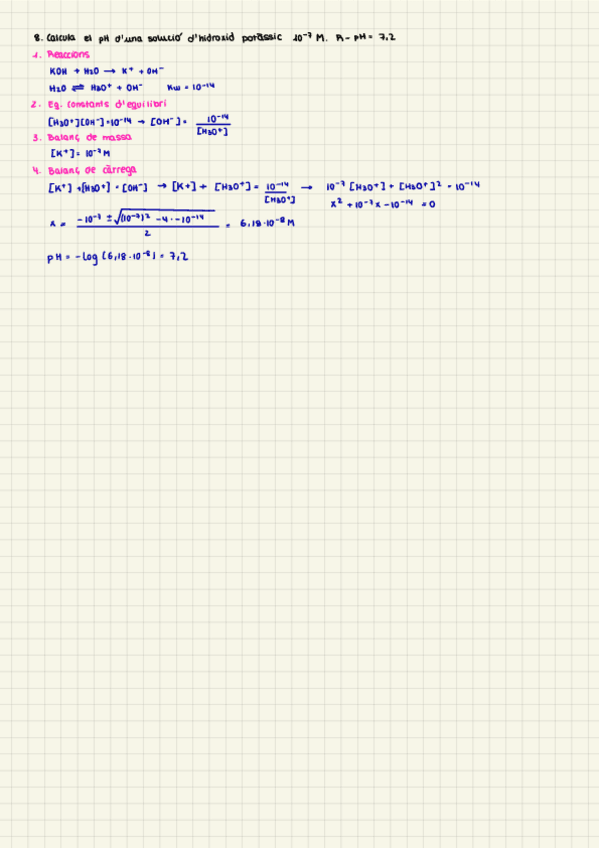 8. Calcula el pH d'una solució d'hidroxid potàssic 10⁻⁷ M. R- pH = 7,2
1. Reaccions
KOH + H2O → K⁺ + OH⁻
H2O ⇌ H3O⁺ + OH⁻ Kw = 10⁻¹⁴
2. Eq. constants d'equilibri
[H3O⁺][OH⁻] = 10⁻¹⁴ → [OH⁻] = 10⁻¹⁴ / [H3O⁺]
3. Balanç de massa
[K⁺] = 10⁻⁷ M
4. Balanç de càrrega
[K⁺] + [H3O⁺] = [OH⁻] → [K+] + [H3O⁺] = 10⁻¹⁴ / [H3O⁺] → 10⁻⁷ [H3O⁺] + [H3O⁺]² = 10⁻¹⁴
x² + 10⁻⁷x - 10⁻¹⁴ = 0
x = -10⁻⁷ ± √(10⁻⁷)² - 4 · -10⁻¹⁴ / 2 = 6,18 · 10⁻⁸ M
pH = -log (6,18 · 10⁻⁸) = 7,2